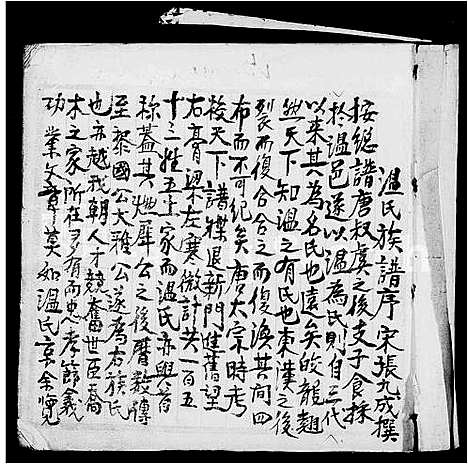 溫氏族譜序 宋張九成撰
按總譜唐叔虞之後支子食採
於溫邑遂以溫為氏則自三代
以来其為名氏也遠矣皎龍翹
然天下知溫之有氏也東漢之後
裂而復合合之而復渙其間四
布而不可紀矣唐太宗時考
校天下譜牒退新門進舊望
右膏梁左寒微計共一百五
十三姓五十家而溫氏亦與首
称蓋其始犀公之後曆数傳
至黎國公大雅公遂為右族氏
也亦越我朝人才競奮世臣喬
木之家所在多有而忠孝節義
功業文章莫如溫氏余覽